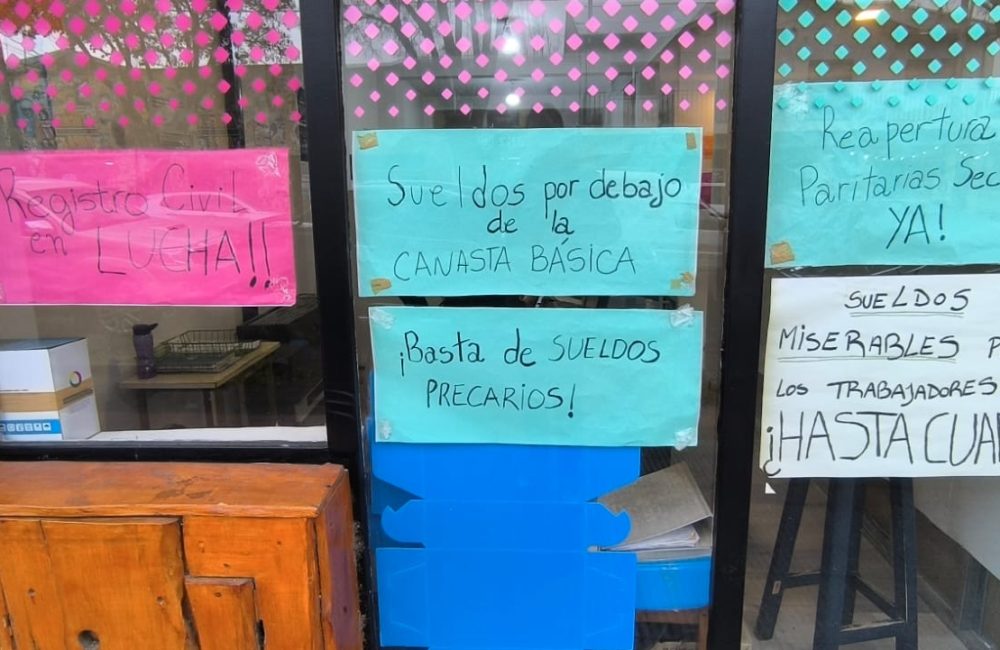 Registro Civil
en LUCHA!!
Sueldos por debajo
de la
CANASTA BÁSICA
¡Basta de SUELDOS
PRECARIOS!
Reapertura
Paritarias Sec
YA!
SUELDOS
MISERABLES P
LOS TRABAJADORES
¡HASTA CUA